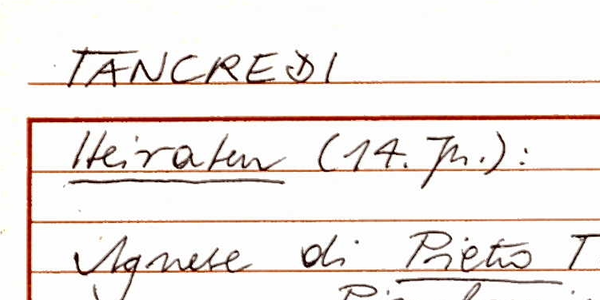 TANCREDI
Heiraten (14. Jh.):
Agnese di Pietro T